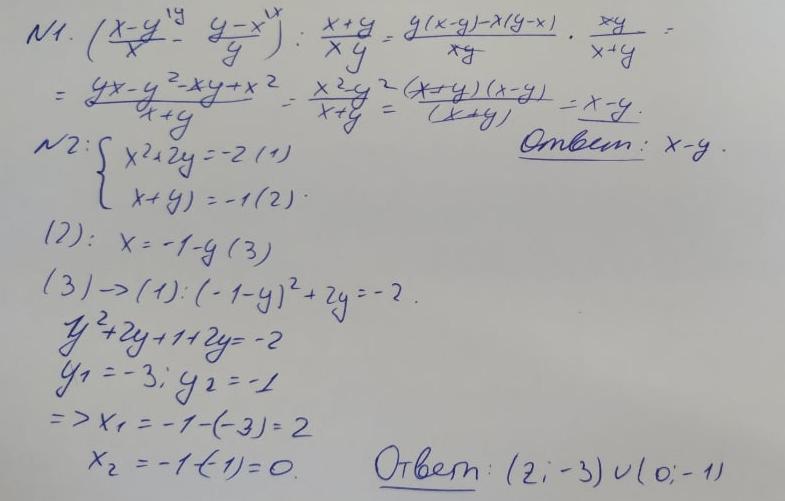 N1. ((x-y)/x - (y-x)/y) : (x+y)/(xy) = (y(x-y)-x(y-x))/(xy) · (xy)/(x+y) =
= (yx-y²-xy+x²)/(x+y) = (x²-y²)/(x+y) = ((x+y)(x-y))/((x+y)) = x-y.
Ответ: x-y.
N2: { x²+2y=-2 (1)
x+y)=-1 (2).
(2): x=-1-y (3)
(3)->(1): (-1-y)²+2y=-2.
y²+2y+1+2y=-2
y1=-3; y2=-1
=> x1=-1-(-3)=2
x2=-1-(-1)=0.
Ответ: (2;-3)∪(0;-1)